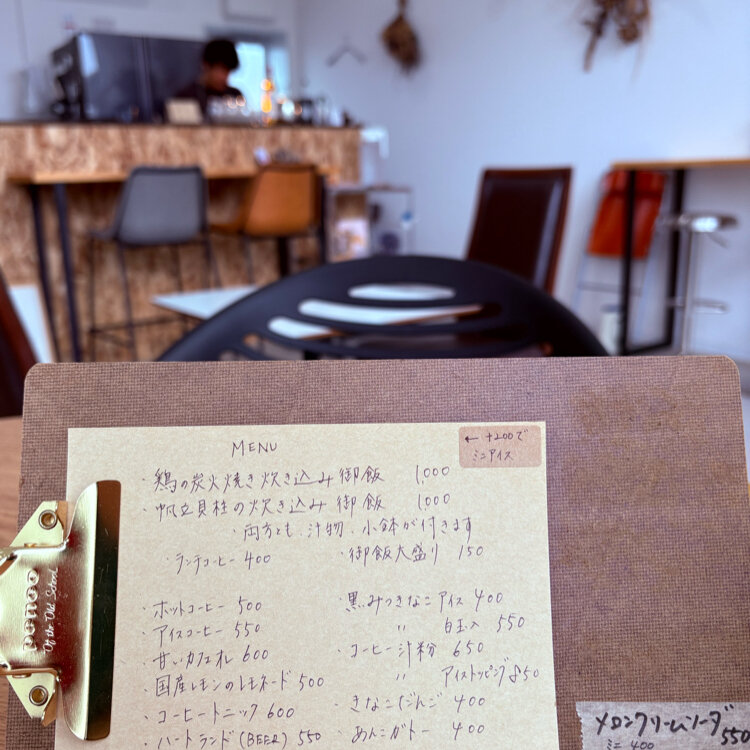 MENU
← +200で
ミニアイス
・鶏の炭火焼き炊き込み御飯 1,000
・帆立貝柱の炊き込み御飯 1,000
・両方とも、汁物、小鉢が付きます
・ランチコーヒー 400 ・御飯大盛り 150
・ホットコーヒー 500
・アイスコーヒー 550
・甘いカフェオレ 600
・国産レモンのレモネード 500
・コーヒートニック 600
・ハートランド(BEER) 550
・黒みつきなこアイス 400
〃 白玉入 550
・コーヒー汁粉 650
〃 アイストッピング 850
・きなこだんご 400
・あんこガトー 400
メロンクリームソーダ 550
ミニ 400
penco
Of the Old School